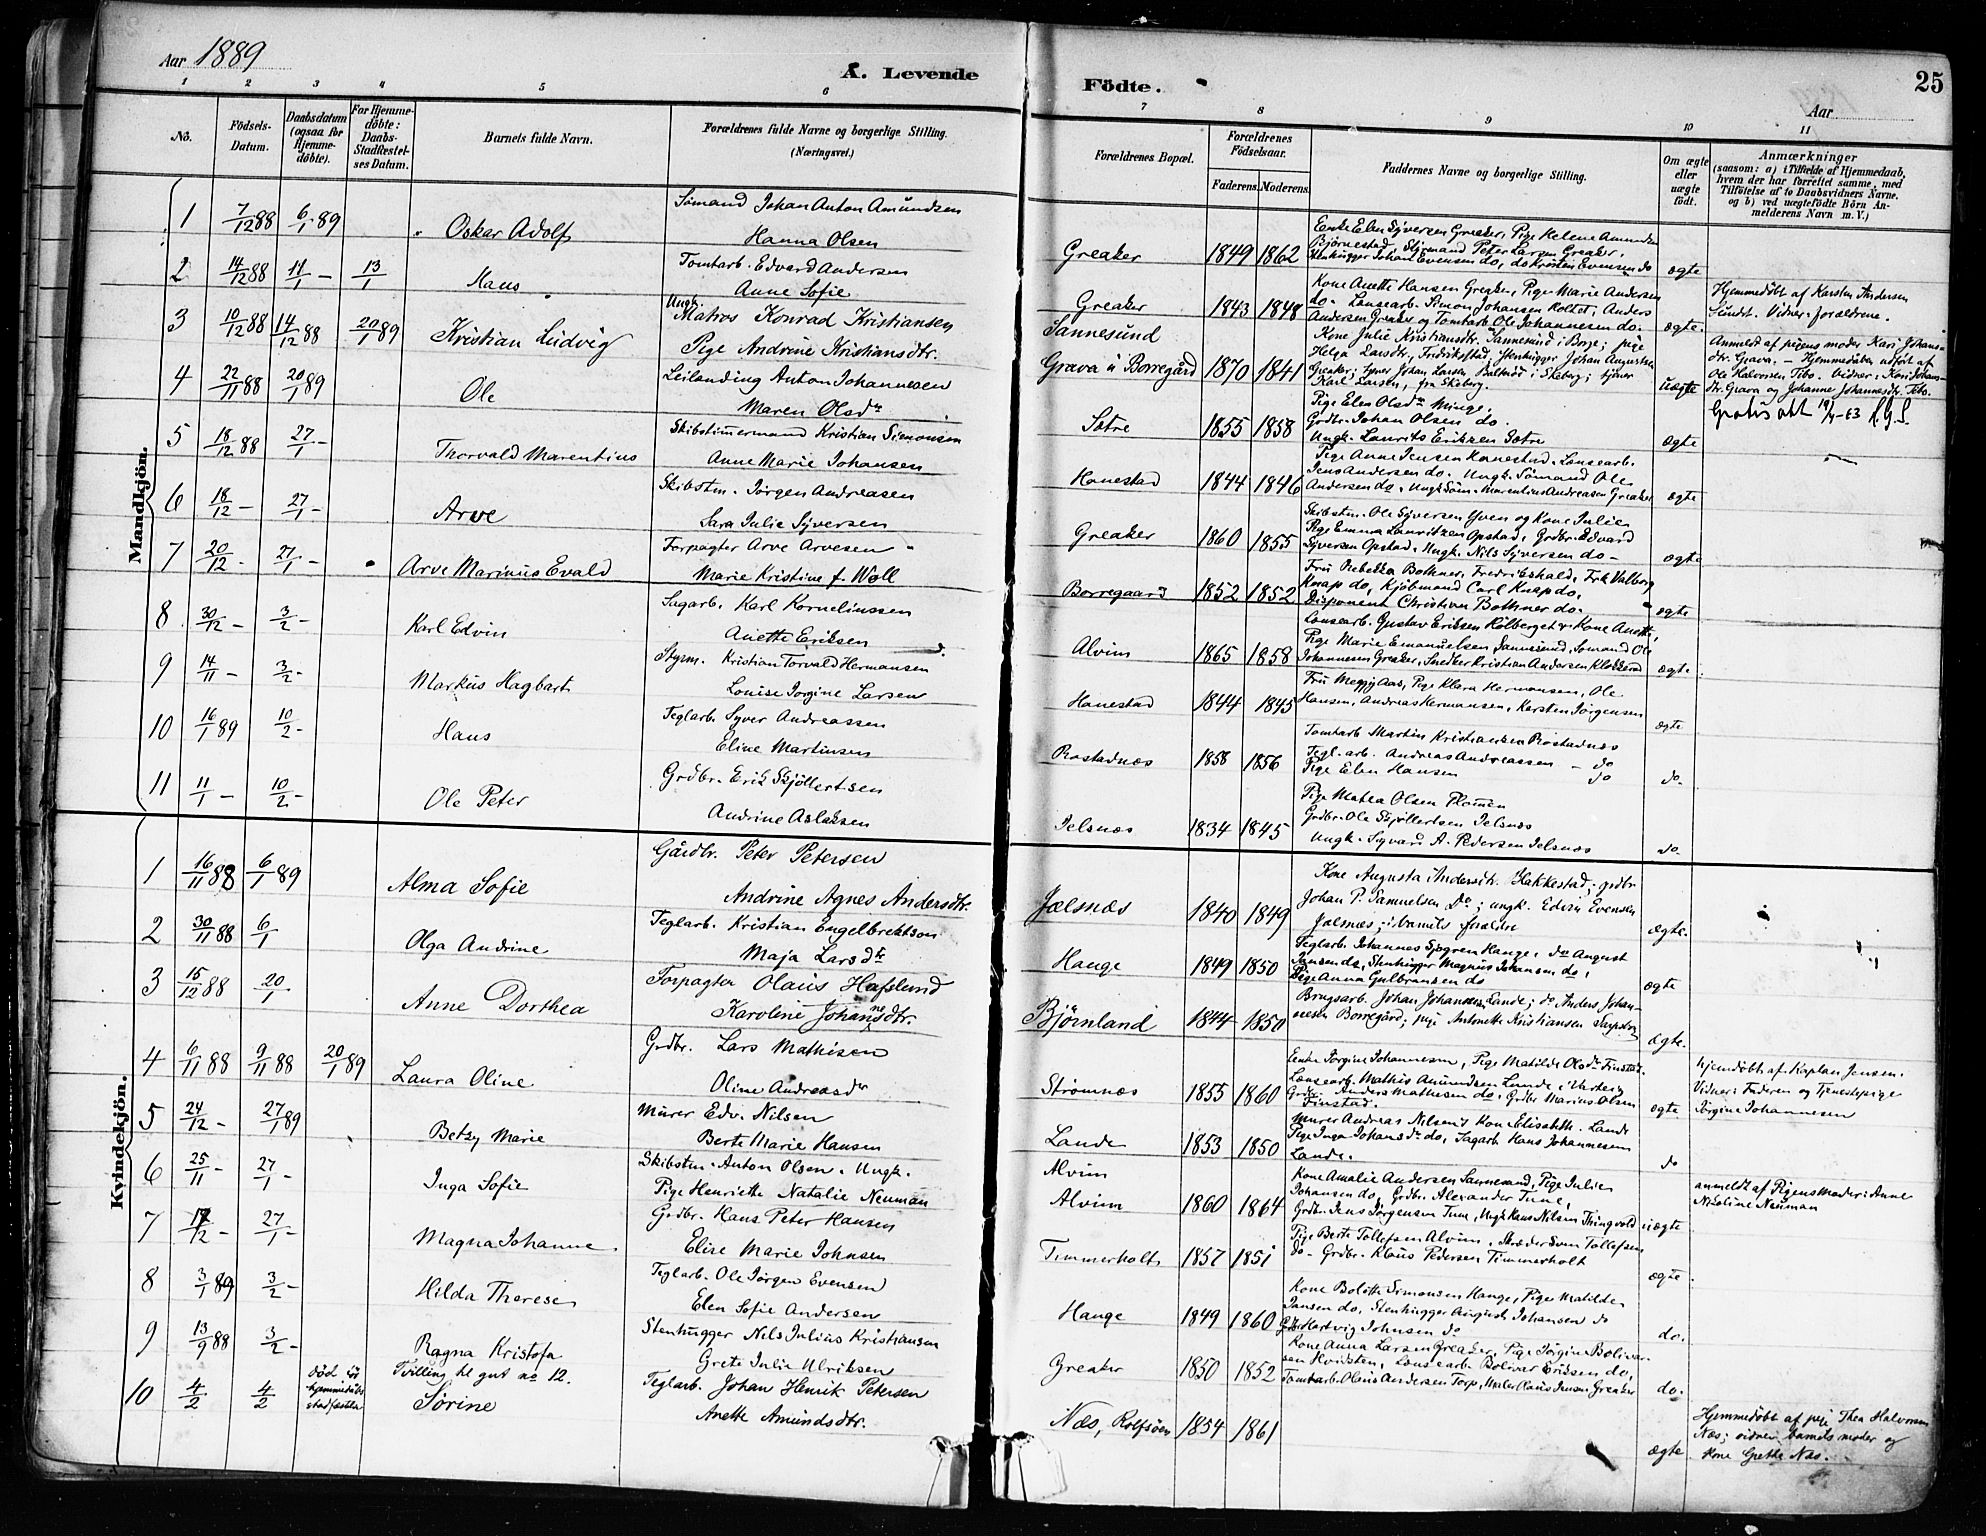 Aar 1889
A. Levende
1 2 3 4 5 6
No.
Födsels-Datum.
Daabsdatum (ogsaa for Hjemmedöbte).
For Hjemmedöbte: Daabs-Stadfæstelses Datum.
Barnets fulde Navn.
Forældrenes fulde Navne og borgerlige Stilling.
(Næringsvei.)
Mandkjön.
1 7/12 88 6/1 89 Oskar Adolf Sömand Johan Anton Amundsen
Hanna Olsen
2 14/12 88 11/1 – 13/1 Hans Tomtarb. Edvard Andersen
Anne Sofie
3 10/12 88 14/12 88 20/1 89 Kristian Ludvig Ungk. Matros Konrad Kristiansen
Pige Andrine Kristiansdtr.
4 22/11 88 20/1 89 Ole Leilænding Anton Johannesen
Maren Olsdtr
5 18/12 88 27/1 – Thorvald Marentius Skibstimmermand Kristian Simonsen
Anne Marie Johansen
6 18/12 – 27/1 – Arve Skibstm. Jörgen Andreasen
Sara Julie Syversen
7 20/12 – 27/1 – Arve Marinus Evald Forpagter Arve Arvesen
Marie Kristine f. Woll
8 30/12 – 3/2 – Karl Edvin Sagarb. Karl Kornelinssen
Anette Eriksen
9 14/11 – 3/2 – Markus Hagbart Styrm. Kristian Torvald Hermansen
Louise Jorgine Larsen
10 16/1 89 10/2 – Hans Teglarb. Syver Andreassen
Eline Martinsen
11 11/1 – 10/2 – Ole Peter Grdbr. Erik Skjöllertsen
Andrine Aslaksen
Kvindekjön.
1 16/11 88 6/1 89 Alma Sofie Gårdbr. Peter Petersen
Andrine Agnes Andersdtr.
2 30/11 88 6/1 Olga Andrine Teglarb. Kristian Engelbrektson
Maja Larsdtr
3 15/12 88 20/1 Anne Dorthea Forpagter Olaus Hafslund
Karoline Johannesdtr.
4 6/11 88 9/11 88 20/1 89 Laura Oline Grdbr. Lars Mathisen
Oline Andreasdr
5 24/12 – 27/1 89 Betzy Marie Murer Edv. Nilsen
Berte Marie Hansen
6 25/11 – 27/1 – Inga Sofie Skibstm. Anton Olsen. Ungk.
Pige Henriette Natalie Neuman
7 17/12 – 27/1 – Magna Johanne Grdbr. Hans Peter Hansen
Elise Marie Johnsen
8 3/1 89 3/2 – Hilda Therese Teglarb. Ole Jörgen Evensen
Elen Sofie Andersen
9 13/9 88 3/2 – Ragna Kristofa Stenhugger Nils Julius Kristiansen
Grete Julie Ulriksen
10 4/2 4/2 død hjemmedöbt stadfæstet Tvilling til gut no 12.
Sörine Teglarb. Johan Henrik Petersen
Anette Amundsdtr.
Födte.
25
Aar
7 8 9 10 11
Forældrenes Bopæl.
Forældrenes Födselsaar.
Faderens. Moderens.
Faddernes Navne og borgerlige Stilling.
Om ægte eller uægte födt.
Anmærkninger
(saasom: a) i Tilfælde af Hjemmedaab, hvem der har forrettet samme, med Tilföielse af to Daabsvidners Navne. og b) ved uægtefödte Börn Anmelderens Navn m. V.)
Greaker 1849 1862 Enke Elen Syversen Greaker, Pige Helene Amundsen
Björnestad, Styrmand Peter Larsen Greaker,
Stenhugger Johan Evensen do, do Kristen Evensen do ægte
Greaker 1843 1848 Kone Anette Hansen Greaker, Pige Marie Andersen
do. Lensearb. Simon Johansen Moldet, Anders
Andersen Greaker og Tomtarb. Ole Johannesen do. ægte.
Hjemmedöbt af Karsten Andersen
Sundt. Vidner: forældrene.
Sannesund
Grava u Borregård 1870 1841 Kone Julie Kristiansdtr. Sannesund i Borge; pige
Helga Larsdtr, Fredrikstad, Stenhugger Johan Augustsen
Greaker; tjener Johan Larsen i Skeberg; tjener
Karl Larsen, fra Skeberg. uægte
Anmeldt af pigens moder Kari Johansdtr. Grava. – Hjemmedåben udført af
Ole Halvorsen Tebo. Vidner: Kari Johansdtr. Grava og Johanne Johannesdtr. Tebo.
Sötre 1855 1858 Pige Elen Olsdtr Minge.
Grdbr. Johan Olsen do.
Ungk. Laurits Eriksen Sötre ægte
Hanestad 1844 1846 Pige Anne Jensen Hanestad. Lensearb.
Jens Andersen do. Ungk. Sömand Ole
Andersen do. Ungk. Söm. Marentius Andreasen Greaker ægte
Greaker 1860 1855 Skibstm. Ole Syversen Yven og Kone Julie
Pige Emma Lauritzen Opstad, Grdbr. Edvard
Syversen Opstad, Ungk. Nils Syversen do – ægte
Borregaard 1852 1852 Fru Rebekka Bothner, Fredrikshald, Frk Valborg
Knap do, Kjöbmand Carl Knap do,
Disponent Christian Bothner do. ægte
Alvim 1865 1858 Lensearb. Gustav Eriksen Kolberget & Kone Anette,
Pige Marie Emanuelsen Sannesund, Sömand Ole
Johannesen Greaker, Snedker Kristian Andersen ægte.
Hanestad 1844 1845 Fru Aas, Pige Klara Hermansen, Ole
Hansen, Andreas Hermansen, Karsten Jörgensen ægte
Rostadnæs 1858 1856 Tomtarb Martin Kristiansen Rostadnæs
Tegl. arb. Andreas Andreassen – do
Pige Elen Hansen do do.
Jelsnæs 1834 1845 Pige Matea Olsen
Grdbr. Ole Skjöllertsen Jelsnæs
Ungk. Sigvard A. Pedersen Jelsnæs do.
Jælsnæs 1840 1849 Kone Augusta Andersdtr. Hakkestad; grdbr
Johan P. Samuelsen Do; ungk. Edvin Evensen
Jælsnæs; barnets forældre ægte.
Hauge 1849 1850 Teglarb. Johannes Sjøgren Hauge, do August
Jensen do, Stenhugger Magnus Johansen do,
Pige Anna Gulbransen do ægte
Björnland 1844 1850 Brugsarb. Johan Johannesen, Lande; do Anders Johannesen Borregård; pige Antonette Kristiansen Sarpsborg ægte.
Strömnæs 1855 1860 Enke Jörgine Johannesen, Pige Matilde Olsdtr Finstad.
Lensearb. Mathis Amundsen Lunde,
Grdbr. Anders Mathesen do, Grdbr Marius Olsen
Finstad. ægte
hjemdöbt af Kaplan Jensen.
Vidner: Faderen og Tjenestepige
Jörgine Johannesen
Lande 1853 1850 Murer Andreas Nilsen & Kone Elisabeth. Lande
Pige Inga Johansdtr do, Sagarb Hans Johannesen
Lande. do
Alvim
Alvim 1860 1864 Kone Amalie Andersen Sannesund, Pige Julie
Johansen do, Grdbr. Alexander Tune,
Grdbr. Jens Jörgensen Tune, Ungk Hans Nilsen Thingvold uægte
anmeldt af Pigens Moder: Anne
Nicoline Neuman
Timmerholt 1857 1851 Pige Berte Tollefsen Alvim, Skræder Sven Tollefsen
do – Grdbr. Klaus Pedersen Timmerholt ægte.
Hauge 1849 1860 Kone Bolette Simonsen Hauge, Pige Matilde
Jansen do, Stenhugger August Johansen do
Hartvig Johnsen do do.
Greaker 1850 1852 Kone Anna Larsen Greaker, Pige Jörgine Bolivarsen Hvidsten, Lensearb Bolivar Eriksen do,
Tomtarb. Olaus Andersen Torp, Maler Olaus Jensen Greaker do.
Næs, Rolfsöen 1854 1861 ægte
Hjemmedöbt af pige Thea Halvorsen
Næs; vidner barnets moder og
kone Grethe Næs.